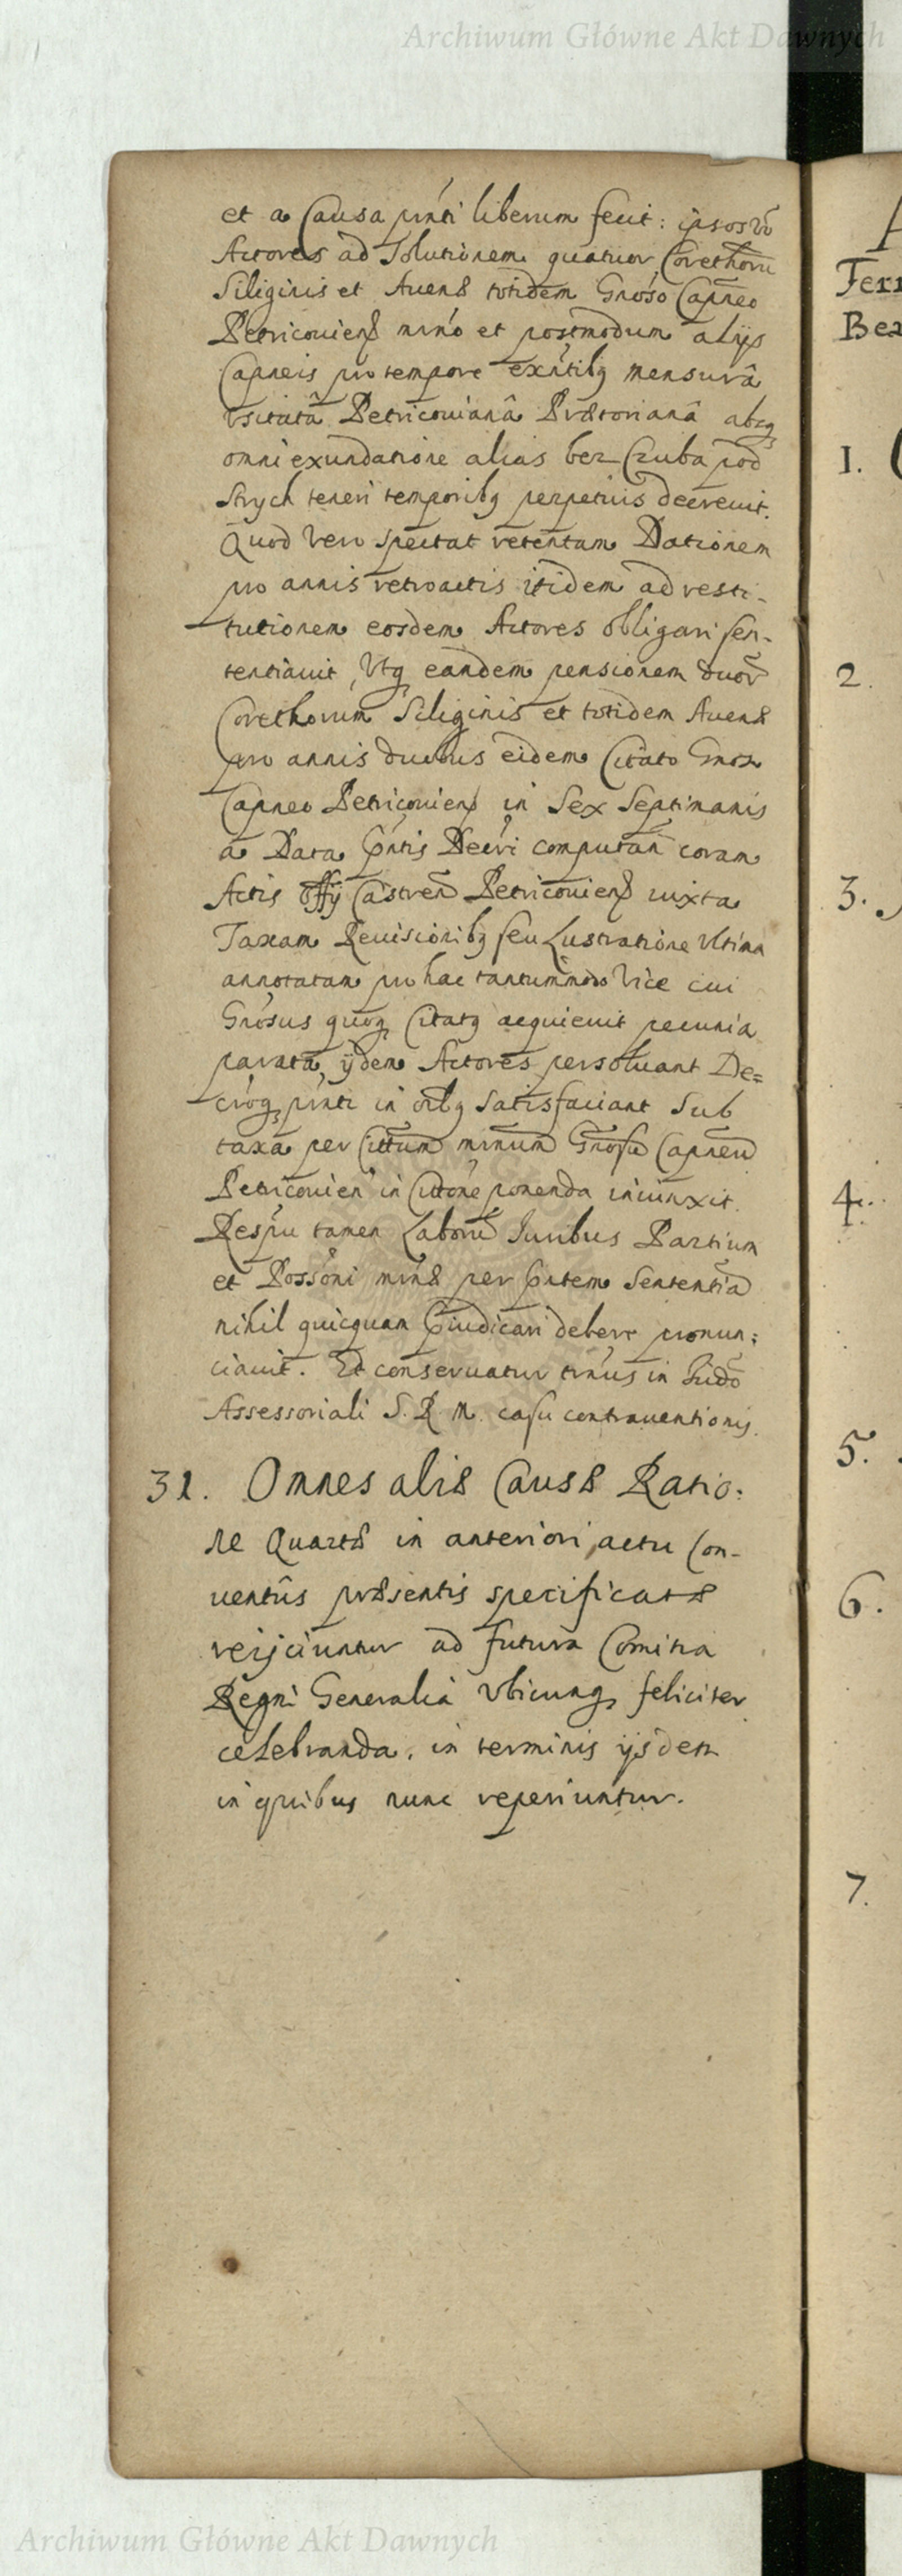 Archiwum Główne Akt Dawnych
et a Causa pńti liberum fecit: ipsos v̄o
Actores ad Solutionem quatuor Corethorū
Siliginis et Auenæ totidem Gnōso Capneo
Petricouieñ mrńo et postmodum alijs
Capneis pro tempore exńtibꝫ mensurâ
vsitatâ Petricouianâ Prætorianâ absqꝫ
omni exundatione alias bez Czuba pod
Strych teneri temporibꝫ perpetuis decreuit.
Quod Vero spectat retentam Dationem
pro annis retroactis itidem ad resti-
tutionem eosdem Actores obligari sen-
tentiauit, Vtqꝫ eandem pensionem duor̄
Corethorum Siliginis et totidem Auenæ
pro annis duobus eidem Citato Gnoso
Capneo Petricouień in Sex Septimanis
a Data pn̄tis Decri computań coram
Actis Offij Castreń Petricouień iuxta
Taxam Reuisioribꝫ seu Lustratione Vltima
annotatam pro hac tantummodo Vice cui
Gnōsus quoqꝫ Citatꝫ acquieuit pecunia
parata, ijdem Actores persoluant De=
croqꝫ pńti in oībꝫ Satisfaciant Sub
taxa per Cittum mrnum Gnosū Capneū
Petricouień in Cittōne ponenda iniunxit.
Respu tamen Laborū Iuribus Partium
et Possōni mrńæ per pn̄tem Sententiā
nihil quicquam p̄iudicari debere pronun:
ciauit. Et conseruatur trńus in Iudō
Assessoriali S. R. M. casu contrauentionis.
31. Omnes aliæ Causæ Ratio:
ne Quartæ in anteriori actu Con-
uentûs præsentis specificatæ
reijciuntur ad futura Comitia
Regni Generalia Vbicunqꝫ feliciter
celebranda, in terminis ijsdem
in quibus nunc reperiuntur.
Ferr
Bea
1.
2.
3.
4.
5.
6.
7.
Archiwum Główne Akt Dawnych